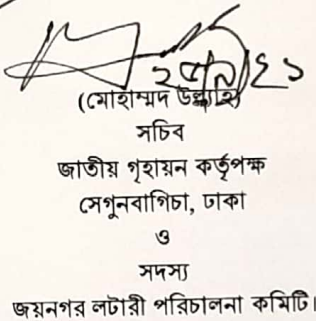 (মোহাম্মদ উল্ল্যাহ)
সচিব
জাতীয় গৃহায়ন কর্তৃপক্ষ
সেগুনবাগিচা, ঢাকা
ও
সদস্য
জয়নগর লটারী পরিচালনা কমিটি।